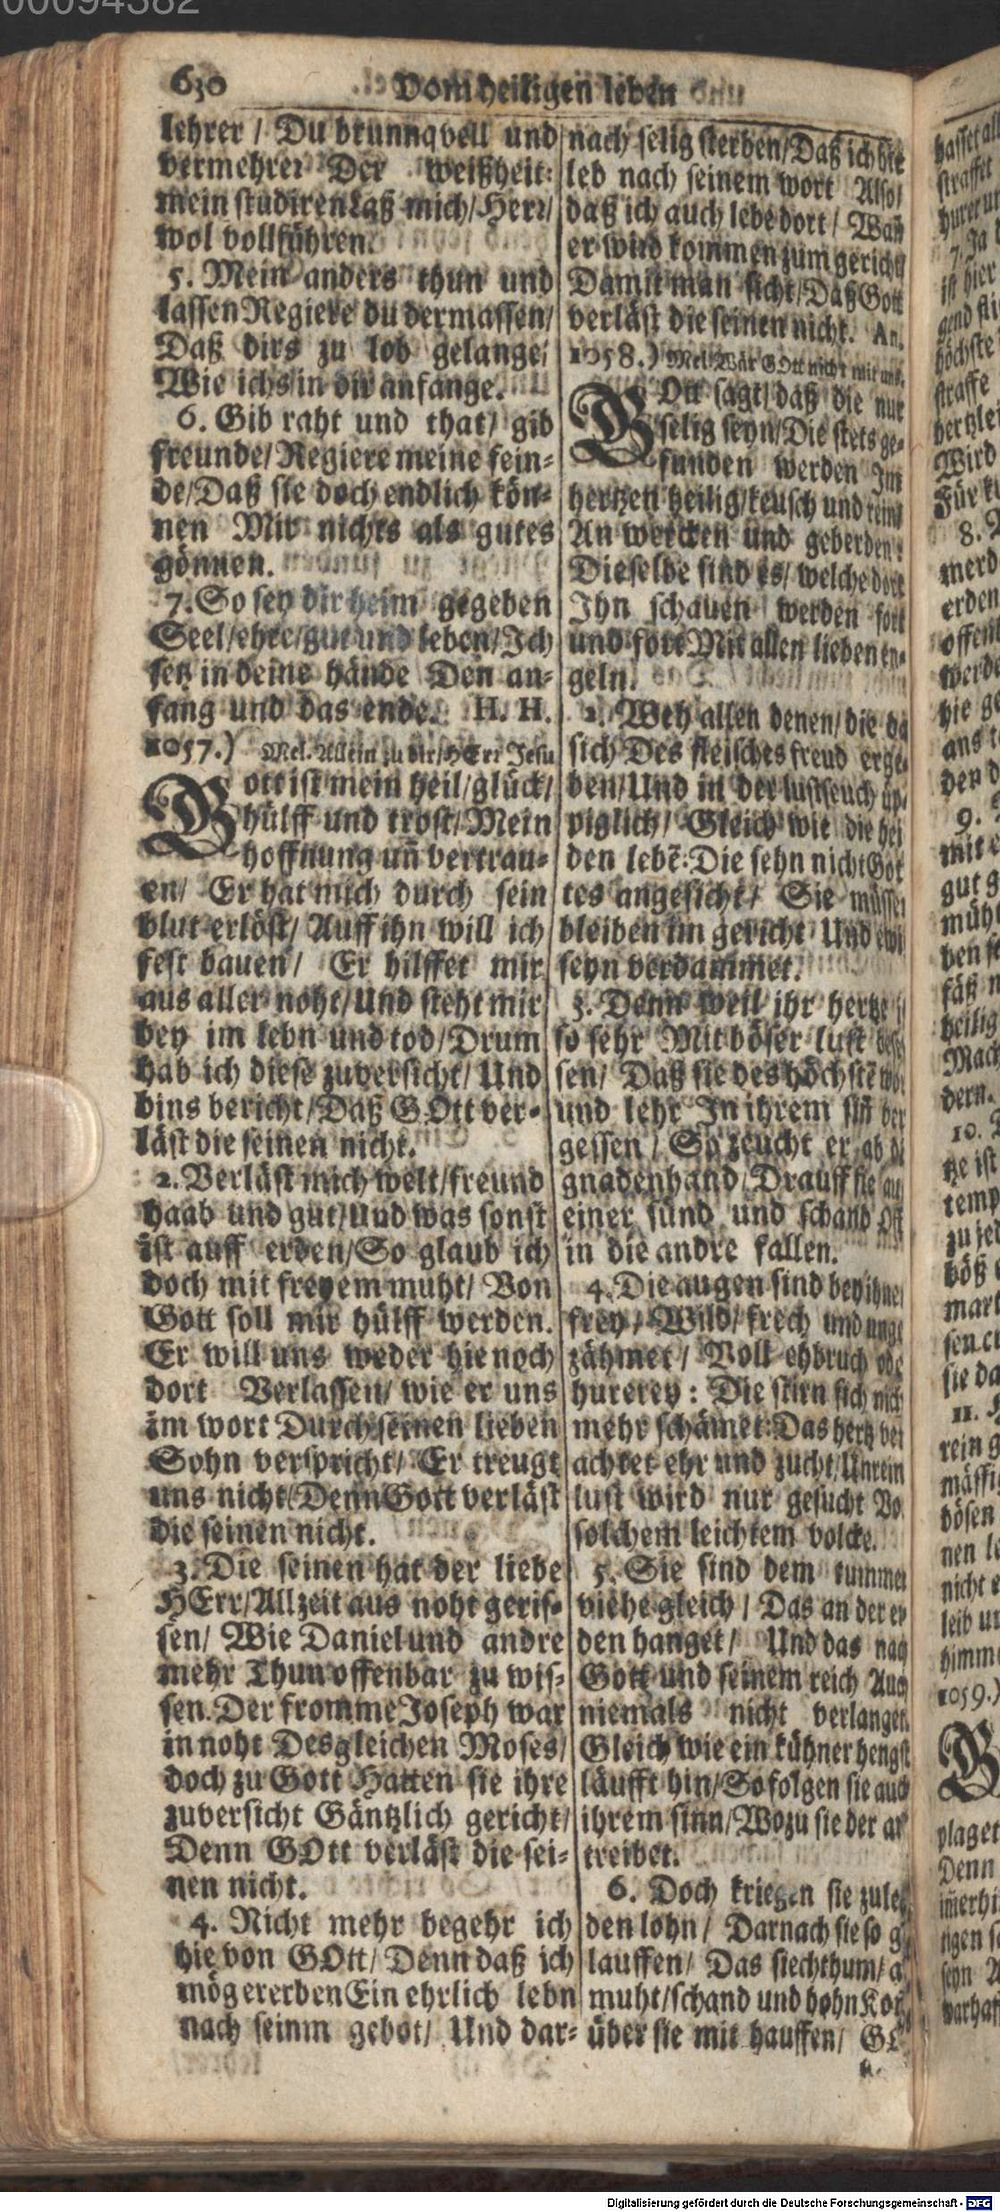 00094382
630 Vom heiligen leben
lehrer / Du brunnqvell und
vermehrer Der weißheit:
mein studiren Laß mich/Herr/
wol vollführen.
5. Mein anders thun und
lassen Regiere du dermassen/
Daß dirs zu lob gelange/
Wie ichs in dir anfange.
6. Gib raht und that/ gib
freunde/Regiere meine fein-
de/Daß sie doch endlich kön-
nen Mir nichts als gutes
gönnen.
7. So sey dir heim gegeben
Seel/ehre/gut und leben/Ich
setz in deine hände Den an-
fang und das ende. H. H.
1057.) Mel. Allein zu dir/HErr Jesu
GOtt ist mein heil/glück/
hülff und trost/Mein
hoffnung uñ vertrau-
en/ Er hat mich durch sein
blut erlöst/ Auff ihn will ich
fest bauen/ Er hilffet mir
aus aller noht/Und steht mir
bey im lebn und tod/Drum
hab ich diese zuversicht/ Und
bins bericht/Daß GOtt ver-
läst die seinen nicht.
2. Verläst mich welt/freund
haab und gut/Und was sonst
ist auff erden/So glaub ich
doch mit freyem muht/ Von
Gott soll mir hülff werden.
Er will uns weder hie noch
dort Verlassen/ wie er uns
im wort Durch seinen lieben
Sohn verspricht/ Er treugt
uns nicht/Denn Gott verläst
die seinen nicht.
3. Die seinen hat der liebe
HErr/Allzeit aus noht geris-
sen/ Wie Daniel und andre
mehr Thun offenbar zu wis-
sen. Der fromme Joseph war
in noht Desgleichen Moses/
doch zu Gott Hatten sie ihre
zuversicht Gäntzlich gericht/
Denn GOtt verläst die sei-
nen nicht.
4. Nicht mehr begehr ich
hie von GOtt/ Denn daß ich
mög ererben Ein ehrlich lebn
nach seinm gebot/ Und dar-
nach selig sterben/Daß ich hie
leb nach seinem wort Also/
daß ich auch lebe dort/ Wañ
er wird kommen zum gericht/
Damit man sicht/Daß Gott
verläst die seinen nicht. An.
1058.) Mel. Wär GOtt nicht mit uns.
GOtt sagt/daß die nur
selig seyn/Die stets ge-
funden werden Im
hertzen heilig/keusch und rein/
An wercken und geberden:
Dieselbe sind es/ welche dort
Ihn schauen werden fort
und fort Mit allen lieben en-
geln.
2. Weh allen denen/die da
sich Des fleisches freud erge-
ben/Und in der lustseuch üp-
piglich/ Gleich wie die hei
den lebē: Die sehn nicht Got
tes angesicht/ Sie müssen
bleiben im gericht Und ewi
seyn verdammet.
3. Denn weil ihr hertze
so sehr Mit böser lust beses
sen/ Daß sie des höchstē wor
und lehr In ihrem siñ ver
gessen / So zeucht er ab di
gnadenhand/Drauff sie au
einer sünd und schand Oft
in die andre fallen.
4. Die augen sind bey ihnen
frey / Wild/ frech und unge
zähmet/ Voll ehbruch ode
hurerey: Die stirn sich nich
mehr schämet: Das hertz ver
achtet ehr und zucht/Unrein
lust wird nur gesucht Vo
solchem leichtem volcke.
5. Sie sind dem tummen
viehe gleich / Das an der er
den hanget/ Und das nach
Gott und seinem reich Auch
niemals nicht verlanget.
Gleich wie ein kühner hengst
läufft hin/So folgen sie auch
ihrem sinn/Wozu sie der ar
treibet.
6. Doch kriegen sie zulet
den lohn/ Darnach sie so g
lauffen/ Das siechthum/ a
muht/schand und hohn Kom
über sie mit hauffen/
straffet
7. Ja
ist hier
höchste
straffe
Wird
8.
merd
erden
offen
9.
mit
gut g
heilig
Mach
dern.
10.
temp
böß
mart
sie da
11.
rein g
bösen
nicht
leib un
himm
1059.)
plaget
Denn
Digitalisierung gefördert durch die Deutsche Forschungsgemeinschaft - DFG